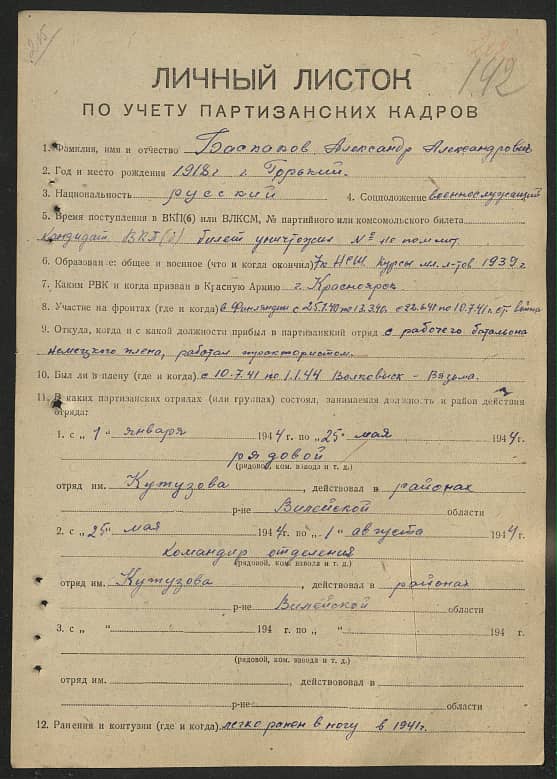 215
142
ЛИЧНЫЙ ЛИСТОК
ПО УЧЕТУ ПАРТИЗАНСКИХ КАДРОВ
1. Фамилия, имя и отчество Баспаков Александр Александрович
2. Год и место рождения 1918 г г. Горький.
3. Национальность русский 4. Соцположение военнослужащий
5. Время поступления в ВКП(б) или ВЛКСМ, № партийного или комсомольского билета
Кандидат ВКП(б) билет уничтожил № не помнит.
6. Образован е: общее и военное (что и когда окончил) 7 кл НСШ курсы мл. л-тов 1939 г
7. Каким РВК и когда призван в Красную Армию г. Красноярск
8. Участие на фронтах (где и когда) в Финляндии с 25.1.40 по 13.3.40г. с 22.6.41 по 10.7.41 г. от. война
9. Откуда, когда и с какой должности прибыл в партизанский отряд с рабочего батальона
немецкого плена, работал трактористом.
10. Был ли в плену (где и когда) с 10.7.41 по 1.1.44 Волковыск - Вязьма.
11. В каких партизанских отрядах (или группах) состоял, занимаемая должность и район действия
отряда:
1. с „ 1 “ января 1944 г. по „ 25 “ мая 1944 г.
рядовой
(рядовой, ком. взвода и т. д.)
отряд им. Кутузова, действовал в районах
р-не Вилейской области
2. с „ 25 “ мая 1944 г. по „ 1 “ августа 1944 г.
Командир отделения
(рядовой, ком. взвода и т. д.)
отряд им. Кутузова, действовал в районах
р-не Вилейской области
3. с „ “ 194 г. по „ “ 194 г.
(рядовой, ком. взвода и т. д.)
отряд им. , действововал в
р-не области
12. Ранения и контузии (где и когда) легко ранен в ногу в 1941 г.